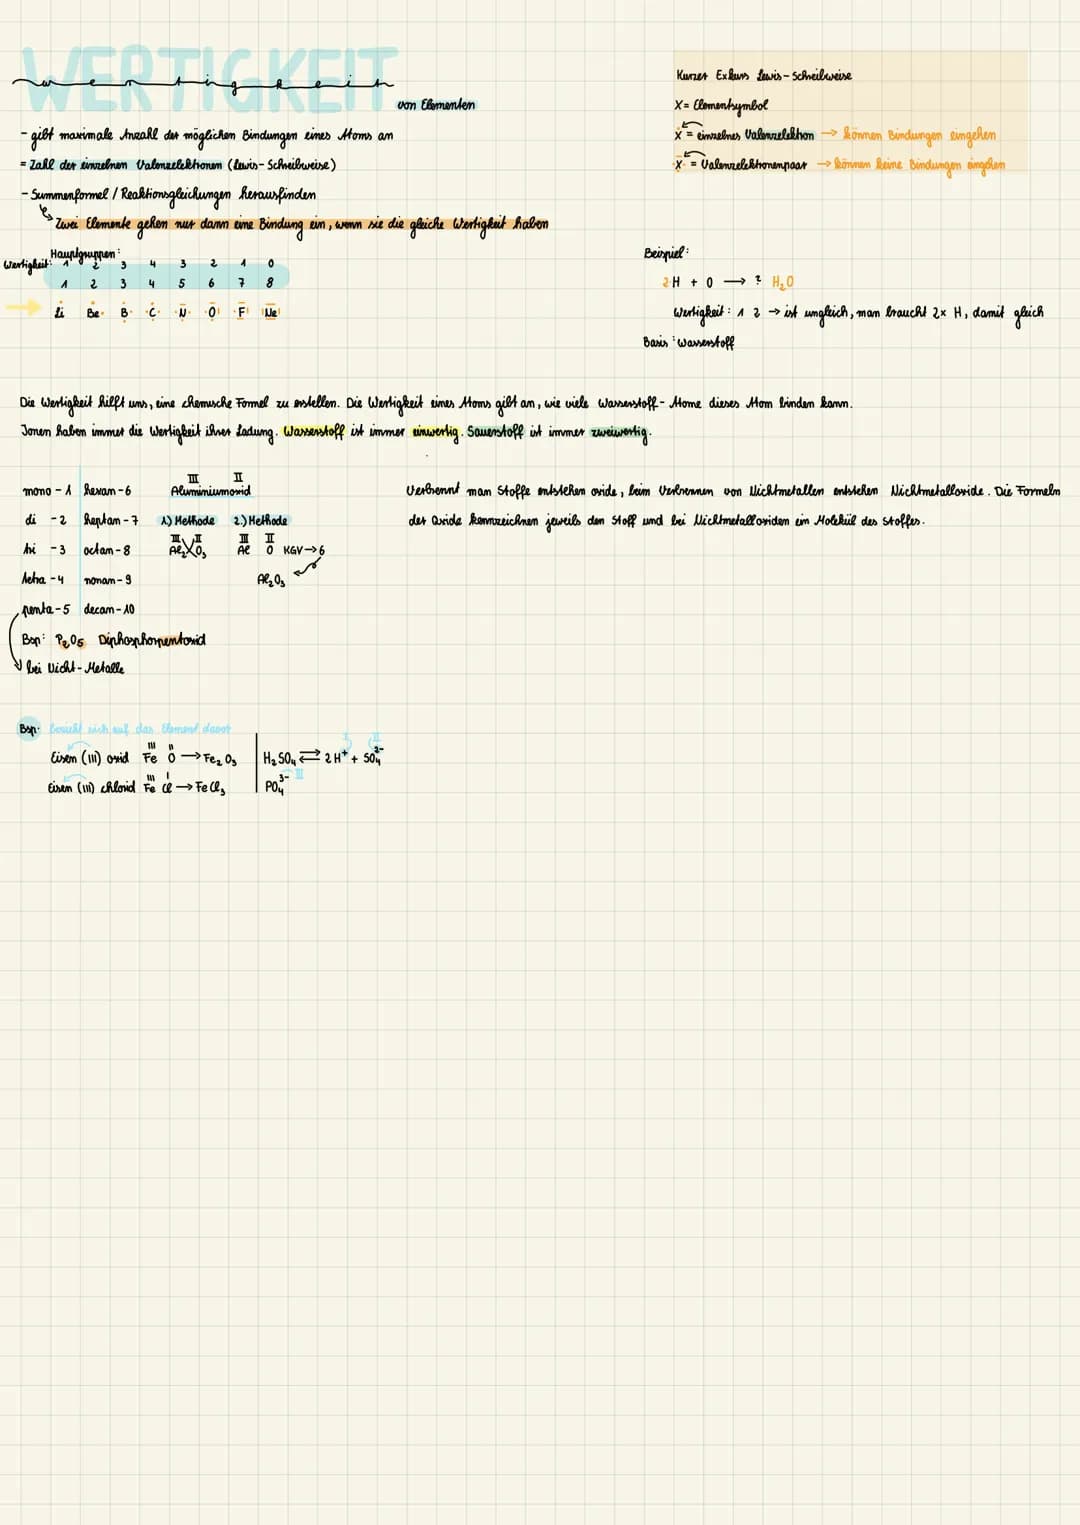 WERTIGKEIT
wertigkeit
von Elementen
- gibt maximale Anzahl der möglichen Bindungen eines Atoms an
= Zahl der einzelnen Valenzelektronen (Lewis-Schreibweise)
- Summenformel / Reaktionsgleichungen herausfinden
↳ Zwei Elemente gehen nur dann eine Bindung ein, wenn sie die gleiche Wertigkeit haben
Kurzer Exkurs Lewis-Schreibweise
X = Elementsymbol
Ẋ = einzelnes Valenzelektron → können Bindungen eingehen
X̄ = Valenzelektronenpaar → können keine Bindungen eingehen
Hauptgruppen:
Wertigkeit: 1 2 3 4 3 2 1 0
1 2 3 4 5 6 7 8
Li Be B C N O F Ne
Beispiel:
2 H + O → ? H₂O
Wertigkeit: 1 2 → ist ungleich, man braucht 2x H, damit gleich
Basis: Wasserstoff
Die Wertigkeit hilft uns, eine chemische Formel zu erstellen. Die Wertigkeit eines Atoms gibt an, wie viele Wasserstoff-Atome dieses Atom binden kann.
Jonen haben immer die Wertigkeit ihrer Ladung. Wasserstoff ist immer einwertig. Sauerstoff ist immer zweiwertig.
mono - 1 hexan - 6
di - 2 heptan - 7
tri - 3 octan - 8
tetra - 4 nonan - 9
penta - 5 decan - 10
Bsp: P₂O₅ Diphosphorpentoxid
bei Nicht-Metalle
III II
Aluminiumoxid
1.) Methode 2.) Methode
III II III II
Al₂ O₃ Al O KGV → 6
Al₂O₃
Verbrennt man Stoffe entstehen oxide, beim Verbrennen von Nichtmetallen entstehen Nichtmetalloxide. Die Formeln
der Oxide kennzeichnen jeweils den Stoff und bei Nichtmetalloxiden ein Molekül des Stoffes.
Bsp: Bezieht sich auf das Element davor
III II
Eisen (III) oxid Fe O → Fe₂O₃
III I
Eisen (III) chlorid Fe Cl → FeCl₃
I II
H₂SO₄ ⇌ 2H⁺ + SO₄²⁻
PO₄³⁻ III